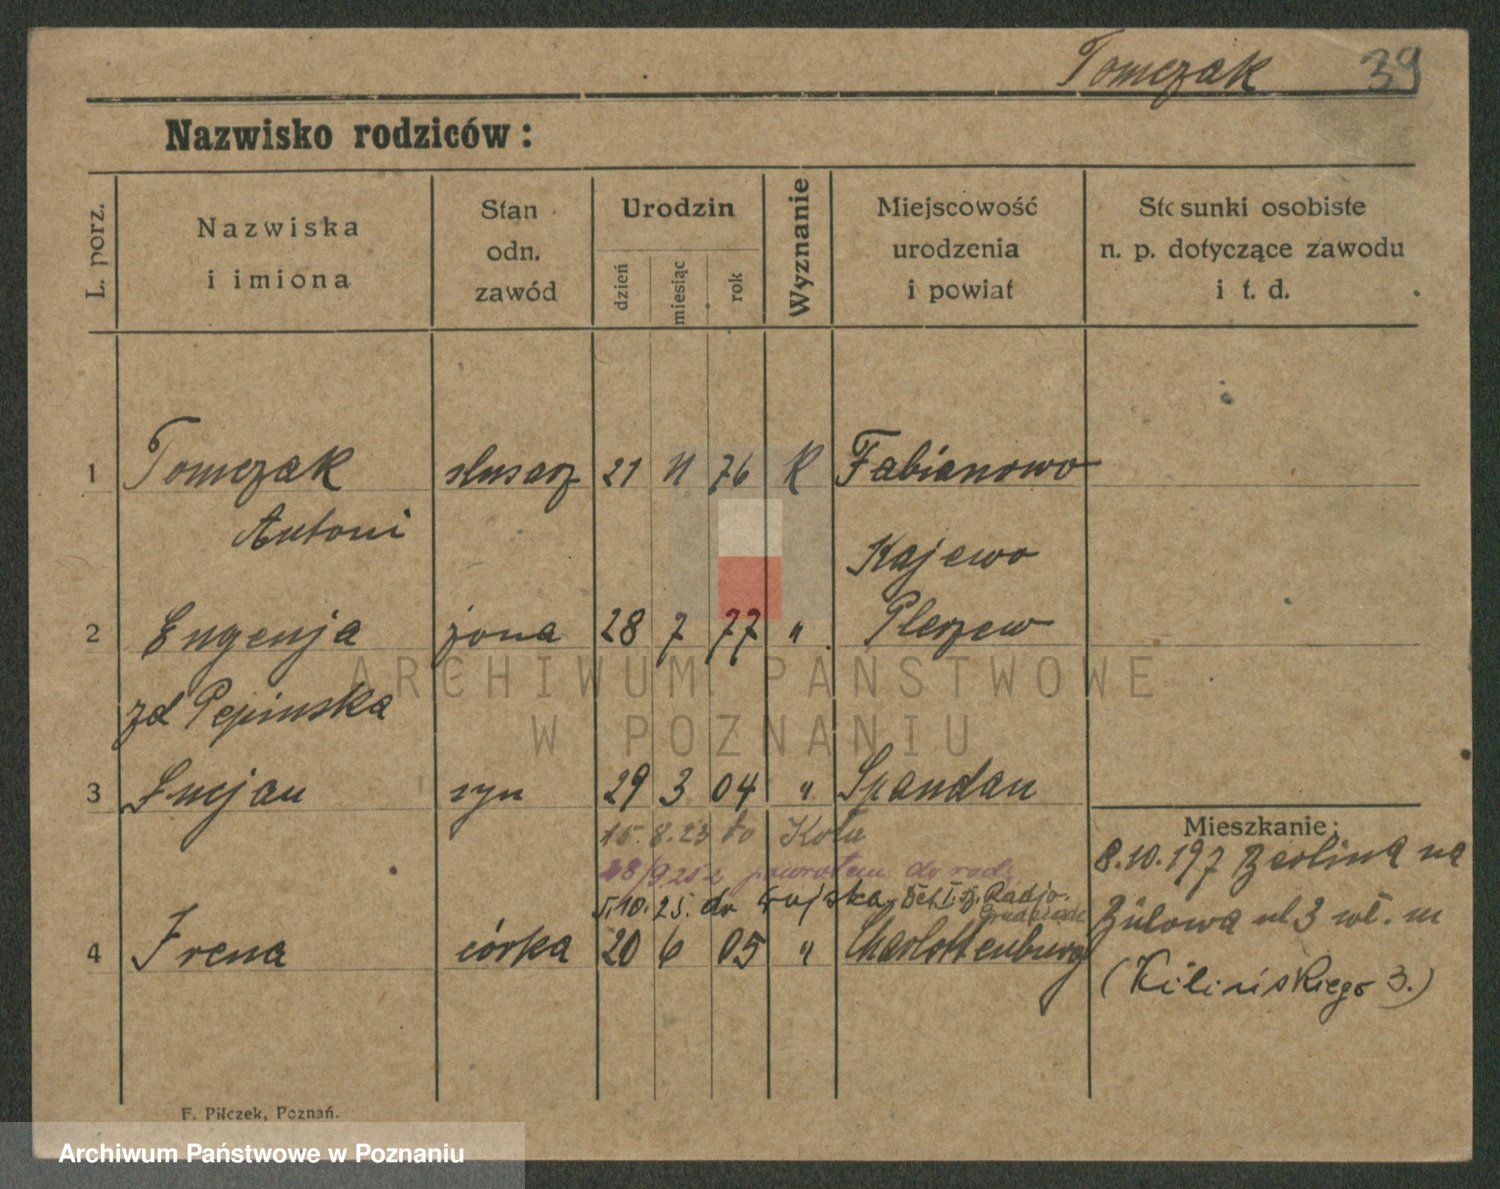 Tomczak 39
Nazwisko rodziców:
L. porz.
Nazwiska
i imiona
Stan
odn.
zawód
Urodzin
dzień
miesiąc
rok
Wyznanie
Miejscowość
urodzenia
i powiat
Stosunki osobiste
n. p. dotyczące zawodu
i t. d.
1 Tomczak slusarz 21 11 76 K Fabianowo
Antoni
Kajewo
2 Eugenja żona 28 7 77 " Pleszew
zd Pepinska
3 Lucjan syn 29 3 04 " Spandau
15.8.23 do Koła
powrotem do rodz.
5.10.25. do wojska, Radjo.
Grudziądz
4 Irena córka 20 6 05 " Charlottenburg
Mieszkanie:
8.10.197 Berlina na
Bülowa ul 3 wł. m
(Kilińskiego 3.)
F. Pilczek, Poznań.
ARCHIWUM PAŃSTWOWE
W POZNANIU
Archiwum Państwowe w Poznaniu